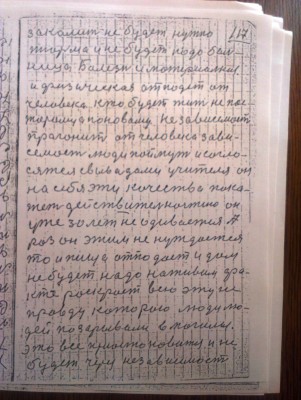 117
закалит не будет нужно
тюрма и не будет надо бол
ница. Болезн и материалная
и физическая отпадет от
человека. кто будет жит не по с
тарому а поновому. независимост
прагонит от человека зави-
семост люди поймут и согло-
сятся с вывадами учителя он
на себя эту качества пока
жет действителностю он
уже 30 лет не одевается А
раз он этим не нуждается
то и пища отпадает и дом
не будет надо наживат
раскроет всю эту
правду которою люди лю-
дей позаривали в могилу.
это все приостановится и не
будет чем независимост